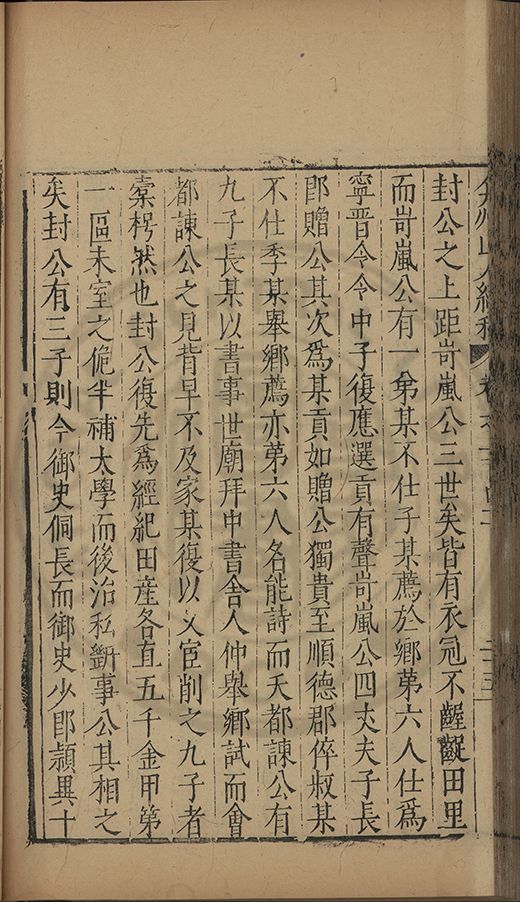 弇州山人續稿 卷之一百四十
封公之上距岢嵐公三世矣皆有衣冠不齷齪田里
而岢嵐公有一弟某不仕子某薦於鄉第六人仕爲
寧晉令令中子復應選貢有聲岢嵐公四丈夫子長
卽贈公其次爲某貢如贈公獨貴至順德郡倅叔某
不仕季某舉鄉薦亦第六人名能詩而夭都諫公有
九子長某以書事世廟拜中書舍人仲舉鄉試而會
都諫公之見背早不及家某復以文宦削之九子者
槖枵然也封公復先爲經紀田産各直五千金甲第
一區未室之倪半補太學而後治私斷事公其相之
矣封公有三子則今御史侗長而御史少卽頴異十